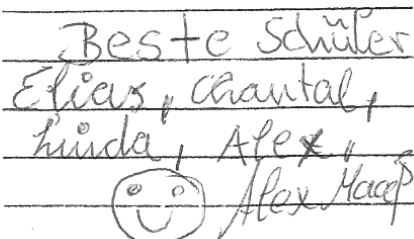 Beste Schüler
Elias, Chantal,
Linda, Alex,
Alex